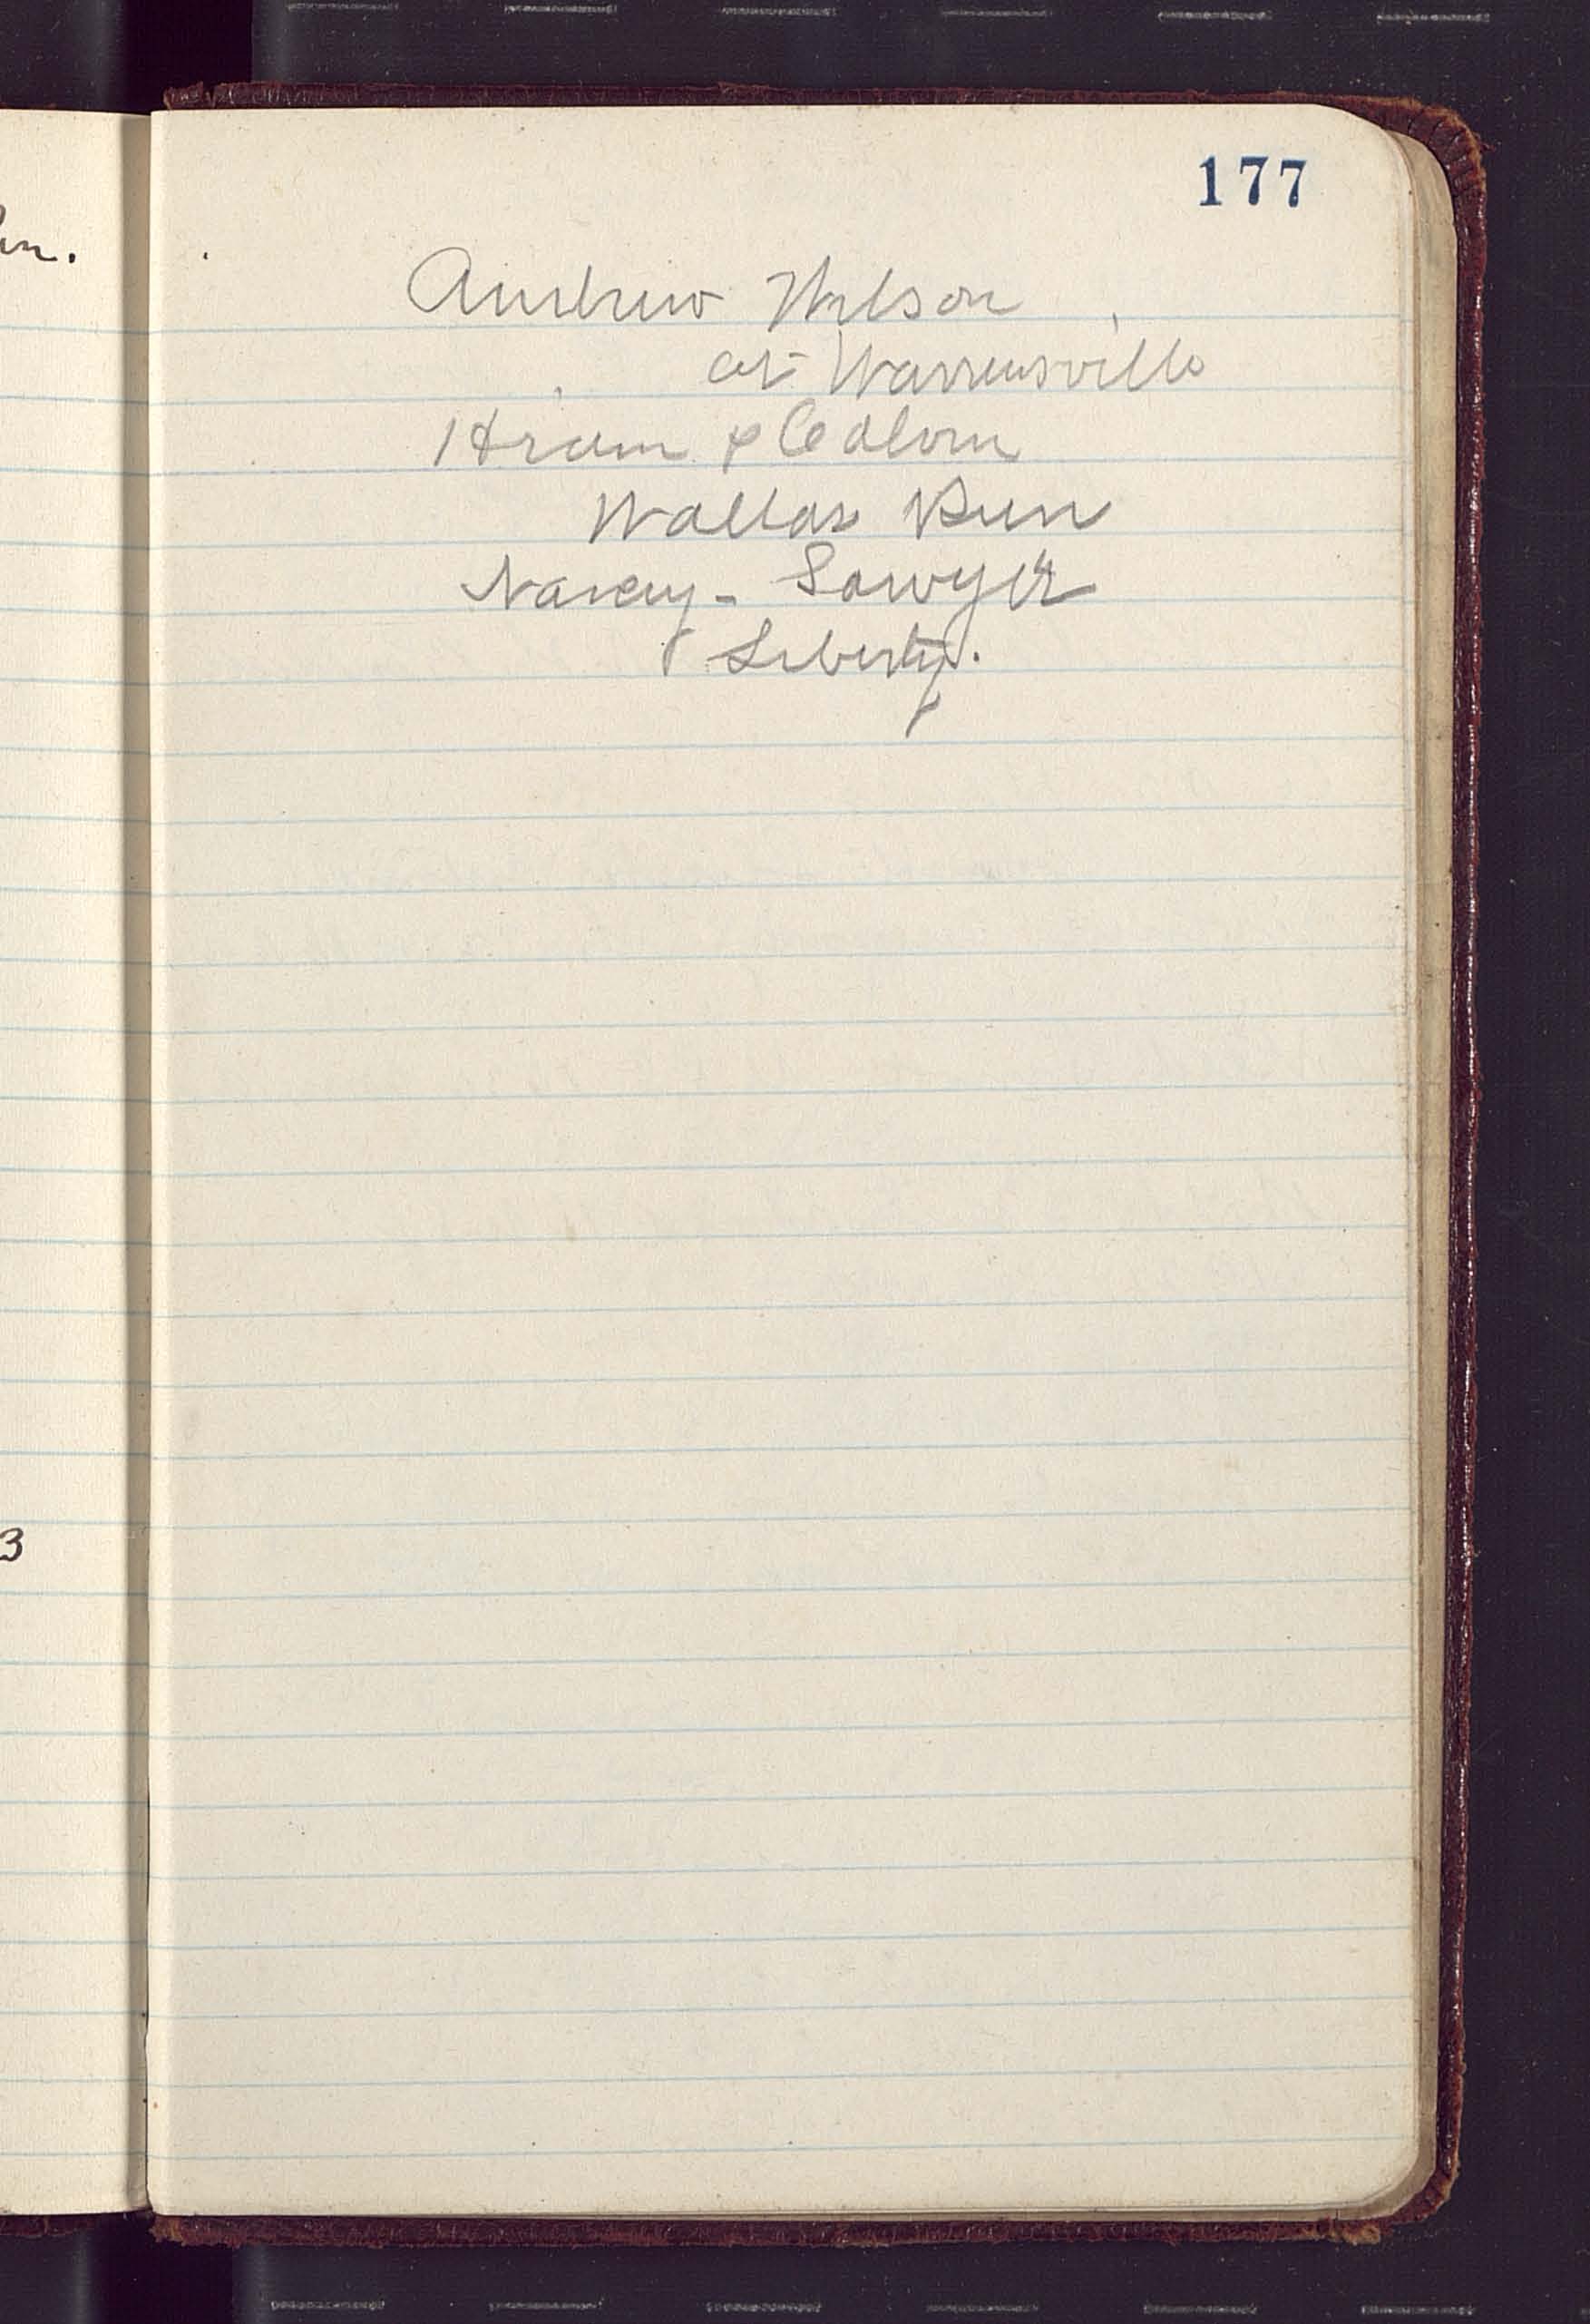 177
Andrew Wilson
at Warrensville
Hiram &
Wallas Run
Nancy - Sawyer
Liberty.
3